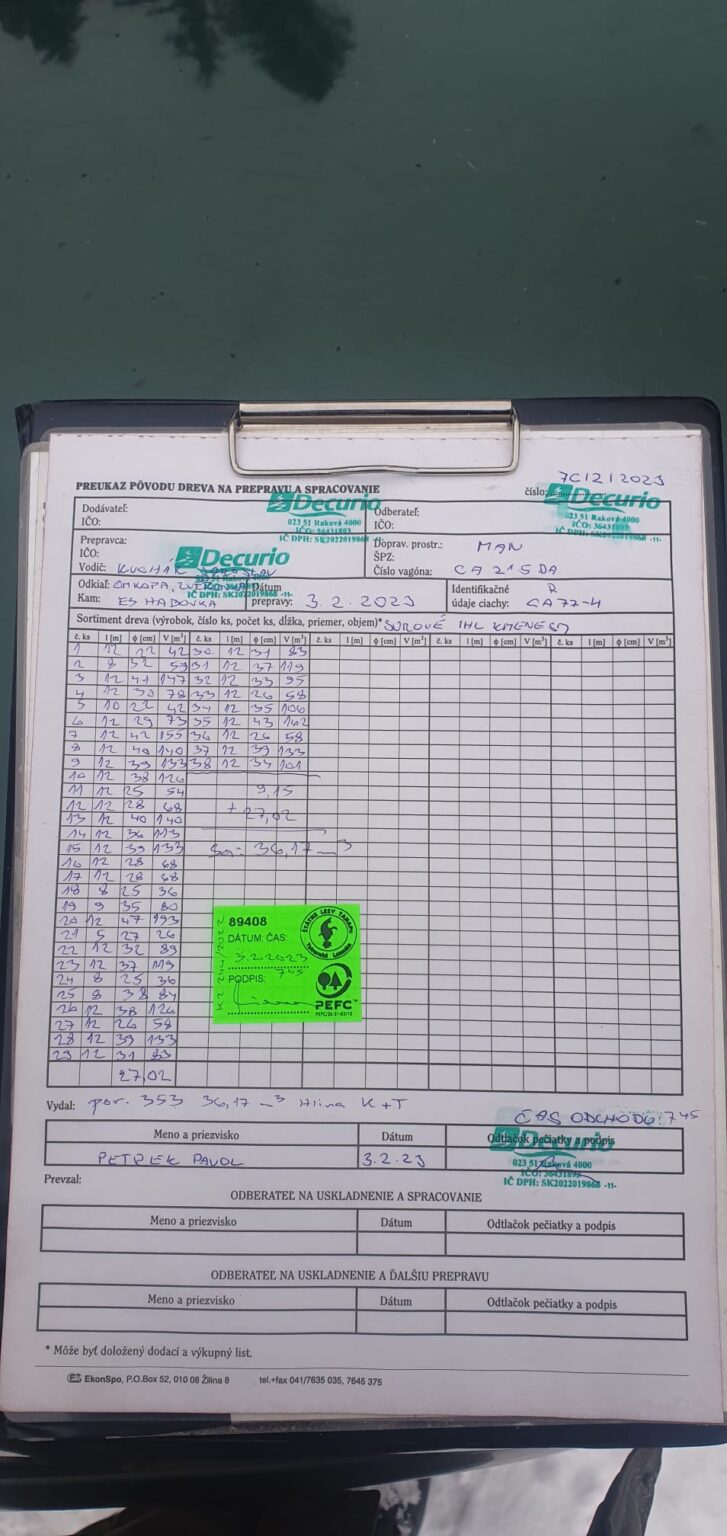 7C/2/2023
PREUKAZ PÔVODU DREVA NA PREPRAVU A SPRACOVANIE
číslo:
Decurio
023 51 Raková 4000
IČO: 36431893
IČ DPH: SK2022019868 -11-
Decurio
023 51 Raková 4000
IČO: 36431893
IČ DPH: SK2022019868 -11-
Dodávateľ:
IČO:
Odberateľ:
IČO:
Prepravca:
IČO:
Vodič: KUCHÁR JAROSLAV
Decurio
IČ DPH: SK2022019868 -11-
Doprav. prostr.: MAN
ŠPZ:
Číslo vagóna: CA 215 DA
Odkiaľ:
Kam: ES HABOVKA
Dátum
prepravy: 3.2.2023
Identifikačné R
údaje ciachy: CA 77-4
Sortiment dreva (výrobok, číslo ks, počet ks, dĺžka, priemer, objem)* SUROVÉ IHL KMENE
č. ks l [m] ϕ [cm] V [m³] č. ks l [m] ϕ [cm] V [m³] č. ks l [m] ϕ [cm] V [m³] č. ks l [m] ϕ [cm] V [m³] č. ks l [m] ϕ [cm] V [m³]
1 12 22 42 30 12 31 83
2 8 32 59 31 12 37 119
3 12 41 147 32 12 33 95
4 12 30 78 33 12 26 58
5 10 22 42 34 12 35 106
6 12 29 73 35 12 43 162
7 12 42 155 36 12 26 58
8 12 40 140 37 12 39 133
9 12 39 133 38 12 34 101
10 12 38 126
11 12 25 54 9,15
12 12 28 68 + 27,02
13 12 40 140
14 12 36 113
15 12 39 133 Sa: 36,17 m³
16 12 28 68
17 12 28 68
18 8 25 36
19 9 35 80
20 12 47 193
21 5 27 26
22 12 32 89
23 12 37 119
24 8 25 36
25 8 38 84
26 12 38 126
27 12 26 58
28 12 39 133
29 12 31 83
27,02
89408
DÁTUM: ČAS:
3.2.2023
7 45
PODPIS:
ŠTÁTNE LESY TANAPU
Tatranská Lomnica
PEFC™
Vydal: por. 353 36,17 m³ Hlina K+T
ČAS ODCHODU: 7 45
Meno a priezvisko Dátum Odtlačok pečiatky a podpis
PETREK PAVOL 3.2.23
Decurio
023 51 Raková 4000
IČO: 36431893
IČ DPH: SK2022019868 -11-
Prevzal:
ODBERATEĽ NA USKLADNENIE A SPRACOVANIE
Meno a priezvisko Dátum Odtlačok pečiatky a podpis
ODBERATEĽ NA USKLADNENIE A ĎALŠIU PREPRAVU
Meno a priezvisko Dátum Odtlačok pečiatky a podpis
* Môže byť doložený dodací a výkupný list.
EkonSpo, P.O.Box 52, 010 08 Žilina 8 tel.+fax 041/7635 035, 7645 375